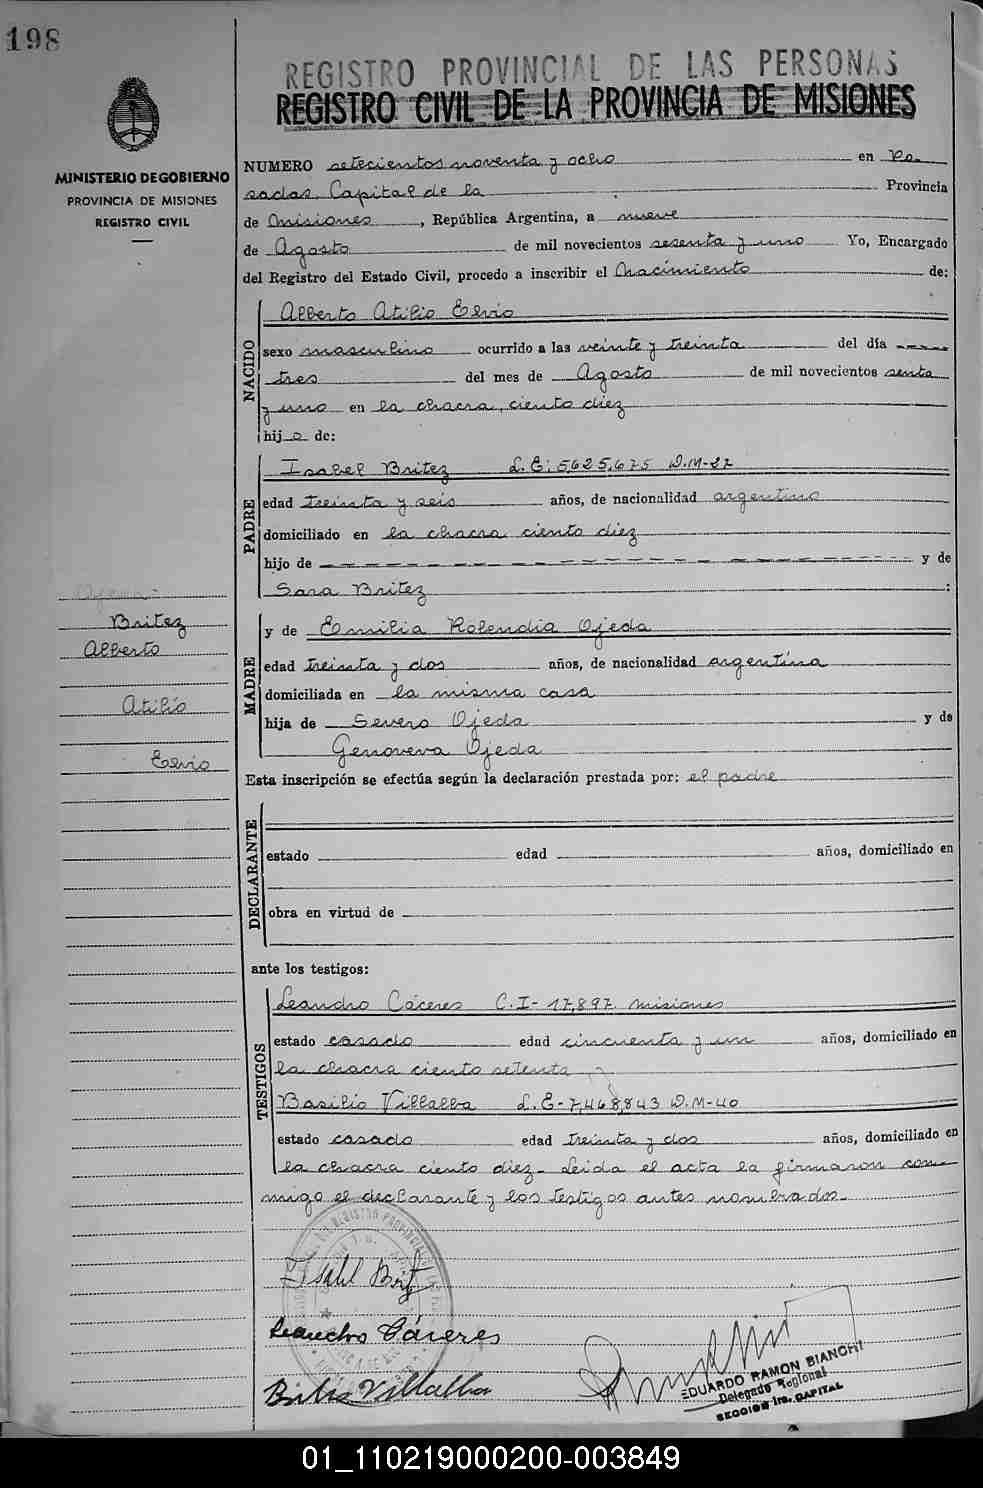 198
REGISTRO PROVINCIAL DE LAS PERSONAS
REGISTRO CIVIL DE LA PROVINCIA DE MISIONES
MINISTERIO DE GOBIERNO
PROVINCIA DE MISIONES
REGISTRO CIVIL
NUMERO setecientos noventa y ocho en Po-
sadas, Capital de la Provincia
de Misiones, República Argentina, a nueve
de Agosto de mil novecientos sesenta y uno Yo, Encargado
del Registro del Estado Civil, procedo a inscribir el Nacimiento de:
NACIDO
Alberto Atilio Elvio
sexo masculino ocurrido a las veinte y treinta del día
tres del mes de Agosto de mil novecientos senta
y uno en la chacra, ciento diez
hijo de:
PADRE
Isabel Britez L.E: 5,625,675 D.M-27
edad treinta y seis años, de nacionalidad argentino
domiciliado en la chacra ciento diez
hijo de y de
Sara Britez
Ojeda
Britez
Alberto
Atilio
Elvio
MADRE
y de Emilia Rolendia Ojeda
edad treinta y dos años, de nacionalidad argentina
domiciliada en la misma casa
hija de Severo Ojeda y de
Genoveva Ojeda
Esta inscripción se efectúa según la declaración prestada por: el padre
DECLARANTE
estado edad años, domiciliado en
obra en virtud de
ante los testigos:
TESTIGOS
Leandro Cáceres C.I- 17,897 misiones
estado casado edad cincuenta y un años, domiciliado en
la chacra ciento setenta y
Basilio Villalba L.E-7,468,843 D.M-40
estado casado edad treinta y dos años, domiciliado en
la chacra ciento diez- Leida el acta la firmaron con-
migo el declarante y los testigos antes nombrados-
Isabel Brit
Leandro Cáceres
Villalba
EDUARDO RAMON BIANCHI
Delegado Regional
SECCION 1ra. CAPITAL
01_110219000200-003849